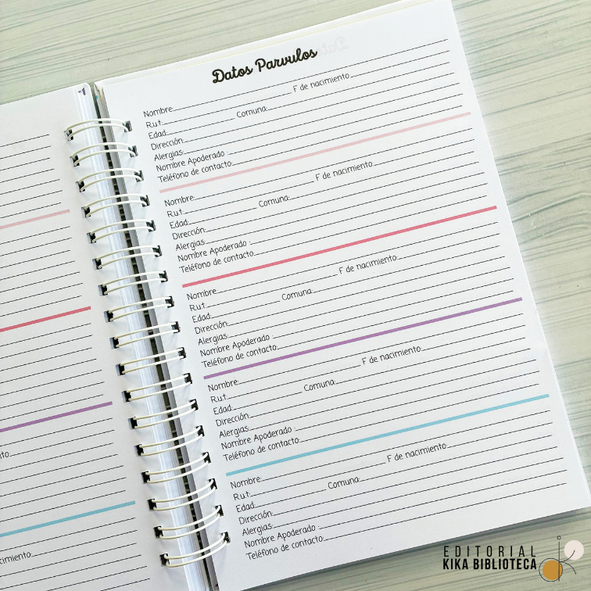 Datos Parvulos
Nombre
Rut F de nacimiento
Edad Comuna
Dirección
Alergias
Nombre Apoderado
Teléfono de contacto
Nombre
Rut F de nacimiento
Edad Comuna
Dirección
Alergias
Nombre Apoderado
Teléfono de contacto
Nombre
Rut F de nacimiento
Edad Comuna
Dirección
Alergias
Nombre Apoderado
Teléfono de contacto
Nombre
Rut F de nacimiento
Edad Comuna
Dirección
Alergias
Nombre Apoderado
Teléfono de contacto
Nombre
Rut F de nacimiento
Edad Comuna
Dirección
Alergias
Nombre Apoderado
Teléfono de contacto
EDITORIAL
KIKA BIBLIOTECA